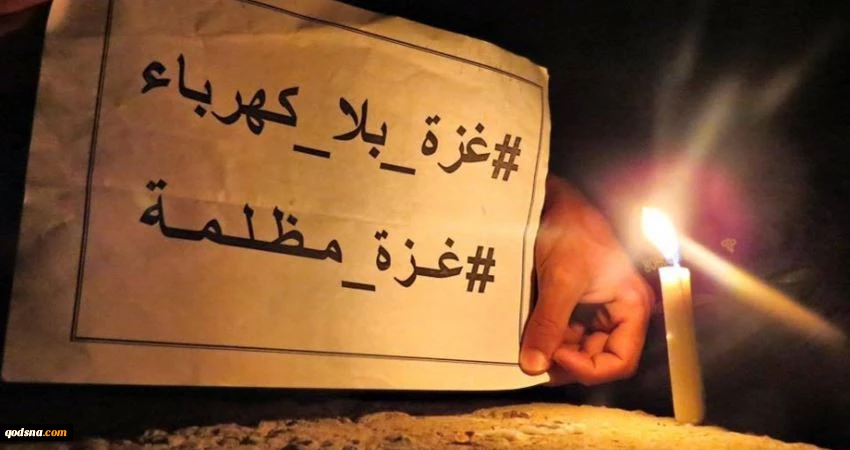 #غزة_بلا_كهرباء
#غزة_مظلمة
qodsna.com